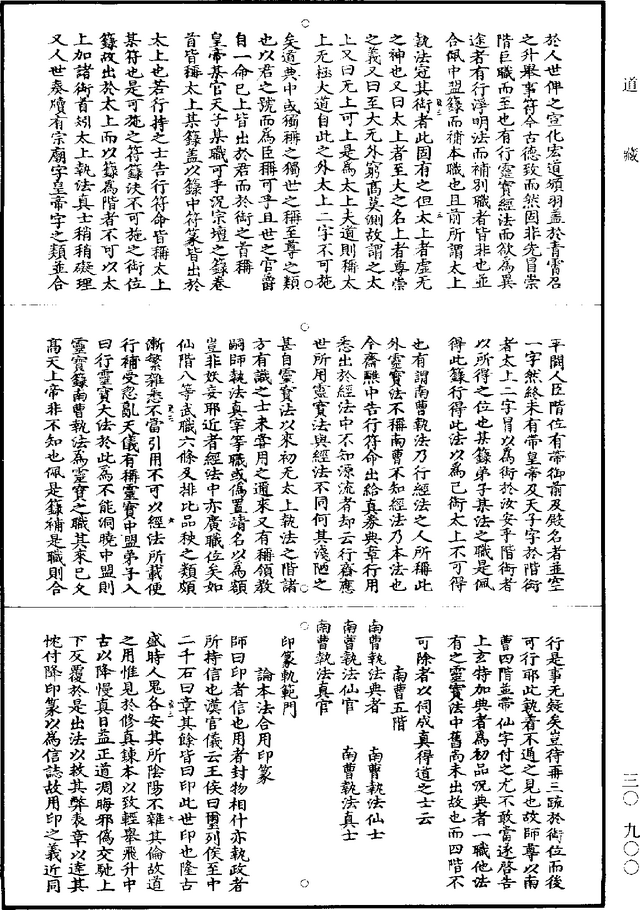 道藏
三〇 九〇〇
於人世俾之宣化宏道頌羽蓋於青霄召
之升舉事符今古德致而然因非先冒崇
階巨職而至也有行靈寶經法而欲為異
途者有行淨明法而補別職者皆非也並
合佩中盟籙而補本職也且前所謂太上
執法冠其銜者此固有之但太上者虛无
之神也又曰太上者至大之名上者尊崇
之義又曰至大无外窮高莫測故謂之太
上又曰无上可上是為太上夫道則稱太
上无極大道自此之外太上二字不可施
矣道典中或獨稱之獨世之稱至尊之類
也以君之號而為臣稱可乎且世之官爵
自一命已上皆出於君而於銜之首稱
皇帝某官天子某職可乎況宗壇之籙卷
首皆稱太上某籙蓋以籙中符篆皆出於
太上也若行持之士告行符命皆稱太上
某符也是可施之符籙決不可施之銜位
籙故出於太上而以籙為階者不可以太
上加諸銜首矧太上執法真士稍稍礙理
又人世奏牘有宗廟字皇帝字之類並合
平闕人臣階位有帶御前及殿名者並空
一字然終未有帶皇帝及天子字於階銜
者太上二字冒以為銜於汝安乎階銜者
以所得之位也某籙弟子某法之職是佩
得此籙行得此法以為己銜太上不可得
也有謂南曹執法乃行經法之人所稱此
外靈寶法不稱南曹不知經法乃本法也
今齋醮中告行符命出給真券典章行用
悉出於經法中不知源流者却云行齋應
世所用靈寶法與經法不同何其淺陋之
甚自靈寶法以來初无太上執法之階諸
方有識之士未嘗用之邇來又有稱領教
嗣師執法真宰等職或偽置請名以為額
豈非妖妄耶近者經法中亦廣職位矣如
仙階八等武職六條及排比品秩之類頗
漸繁雜悉不當引用不可以經法所載便
行補受忽亂天儀有稱靈寶中盟弟子入
曰行靈寶大法於此為不能洞曉中盟則
靈寶籙南曹執法為靈寶之職其來已久
高天上帝非不知也佩是籙補是職則合
行是事无疑矣豈待再三疏於銜位而後
可行耶此執着不通之見也故師尊以南
曹四階並帶仙字付之尤不敢當遂啓告
上玄特加典者為初品況典者一職他法
有之靈寶法中舊尚未出故也而四階不
可除者以伺成真得道之士云
南曹五階
南曹執法典者 南曹執法仙士
南曹執法仙官 南曹執法真士
南曹執法真官
印篆軌範門
論本法合用印篆
師曰印者信也用者封物相什亦執政者
所持信也漢官儀云王侯曰璽列侯至中
二千石曰章其餘皆曰印此世印也隆古
盛時人鬼各安其所陰陽不雜其倫故道
之用惟見於修真鍊本以致輕舉飛升中
古以降慢真日益正道凋晦邪偽交馳上
下反覆於是出法以救其弊表章以達其
忱付降印篆以為信誌故用印之義近同